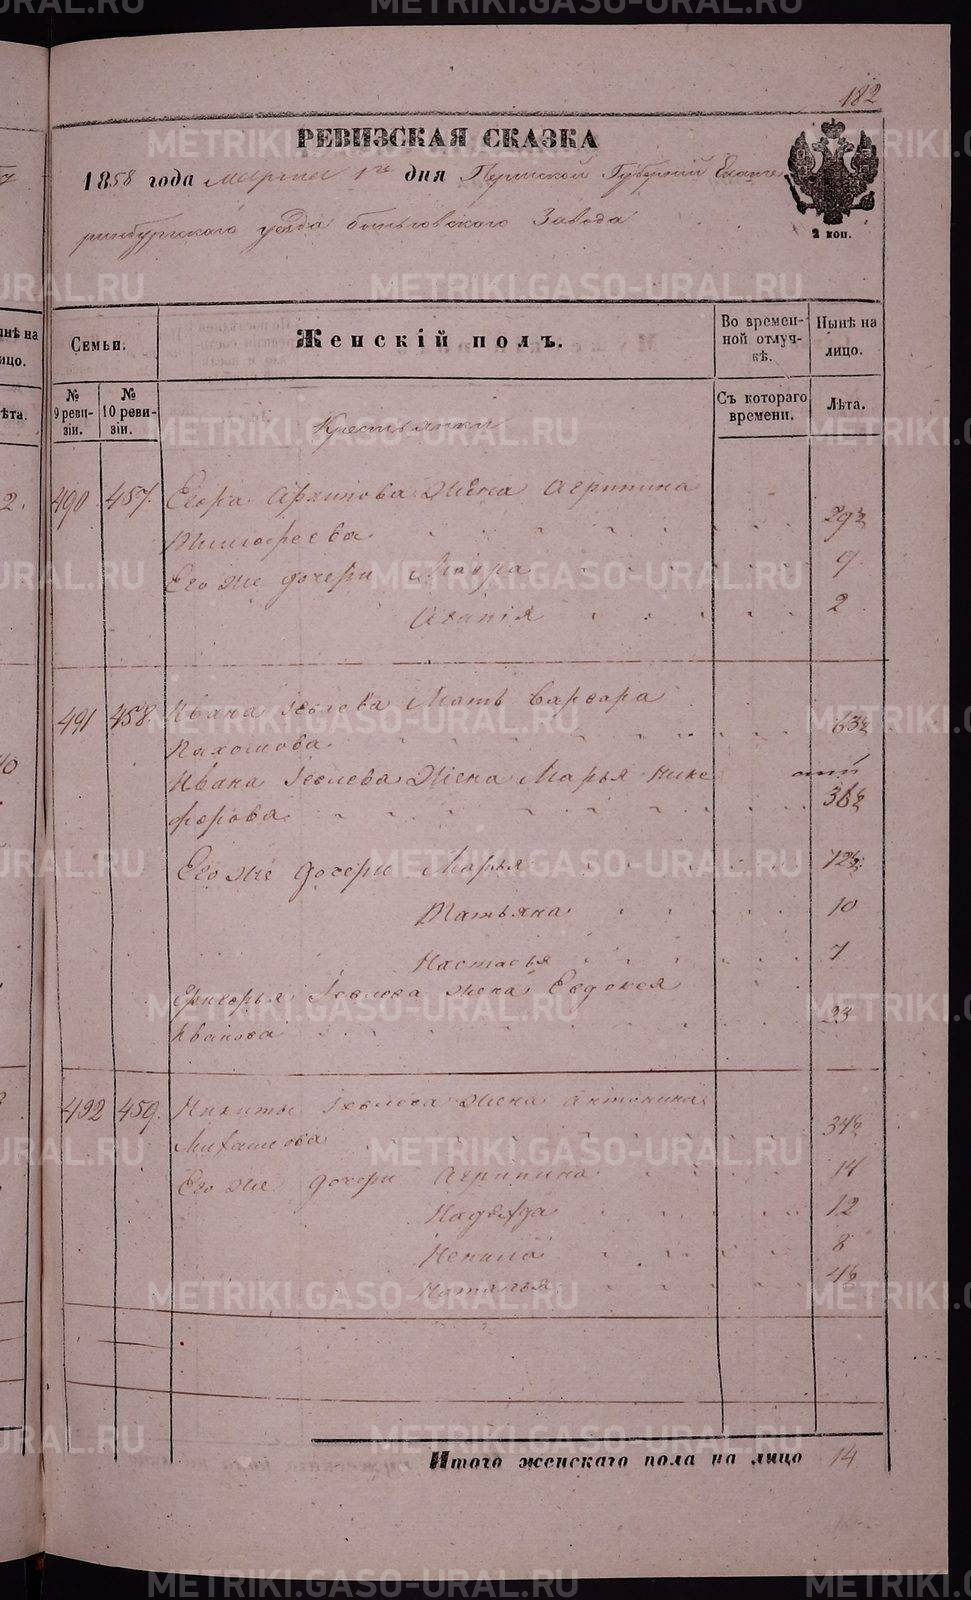 182
РЕВИЗСКАЯ СКАЗКА
1858 года марта 1го дня Пермской Губерніи Екате
ринбургскаго уезда Завода
2 коп.
Семьи.
Женскій полъ.
Во времен-
ной отлуч-
кѣ.
Нынѣ на
лицо.
№
9 реви-
зіи.
№
10 реви-
зіи.
Съ котораго
времени.
Лѣта.
Крестьянки
490 457. Егора Архипова жена Агрипина
Тимофеева 29½
Его же дочери Мавра 9
Агапія 2
491 458. Ивана Іевлева Мать Варвара
Пахомова 63½
Ивана Іевлева жена Марья Ники
форова 38½
Его же дочери Марья 12½
Татьяна 10
Настасья 7
Григорья Іевлева жена Евдокея
Иванова 23
492 459. Никиты Іевлева жена Антонина
34½
Его же дочери Агрипина 14
Надежда 12
Ненила 8
Наталья 4½
Итого женскаго пола на лицо 14
METRIKI.GASO-URAL.RU